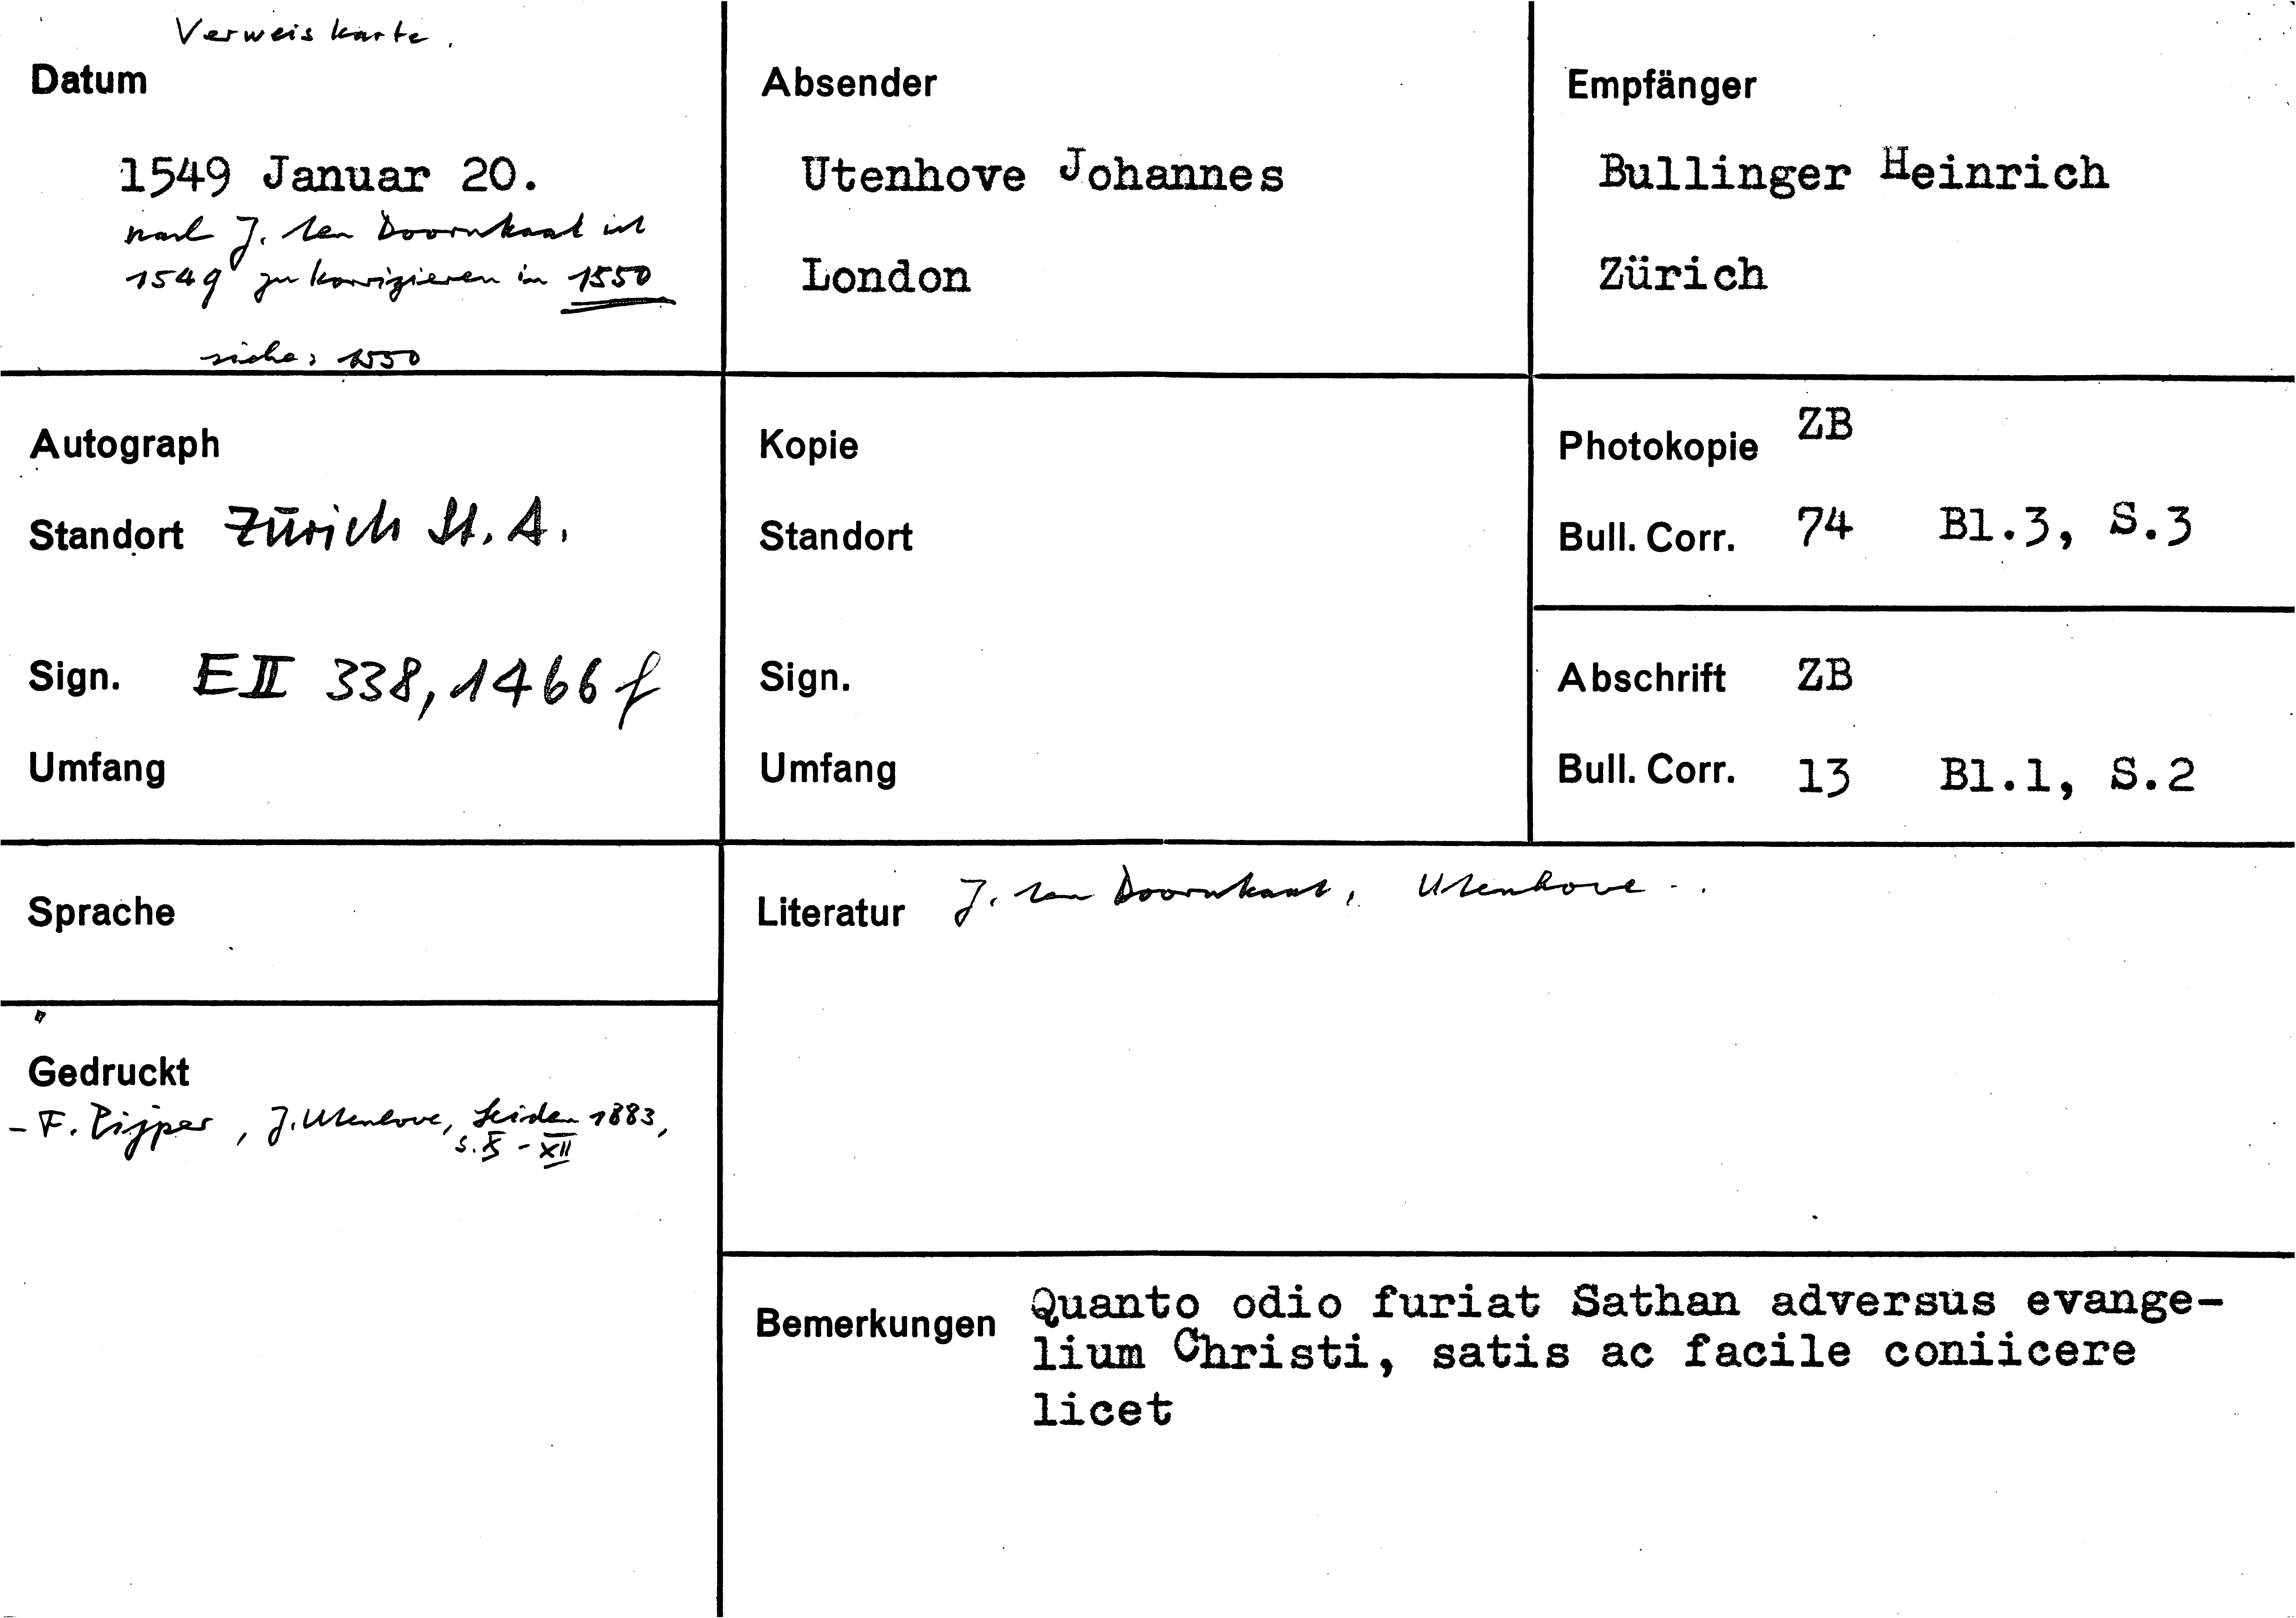 Verweiskarte.
Datum
1549 Januar 20.
nach J. ten Doornkaat ist
1549 zu korrigieren in 1550
siehe: 1550
Absender
Utenhove Johannes
London
Empfänger
Bullinger Heinrich
Zürich
Autograph
Standort Zürich St. A.
Sign. E II 338, 1466 f
Umfang
Kopie
Standort
Sign.
Umfang
Photokopie ZB
Bull. Corr. 74 Bl.3, S.3
Abschrift ZB
Bull. Corr. 13 Bl.1, S.2
Sprache
Gedruckt
- F. Pijper, J. Utenhove, Leiden 1883,
S. X - XII
Literatur J. ten Doornkaat, Utenhove ..
Bemerkungen Quanto odio furiat Sathan adversus evange-
lium Christi, satis ac facile coniicere
licet